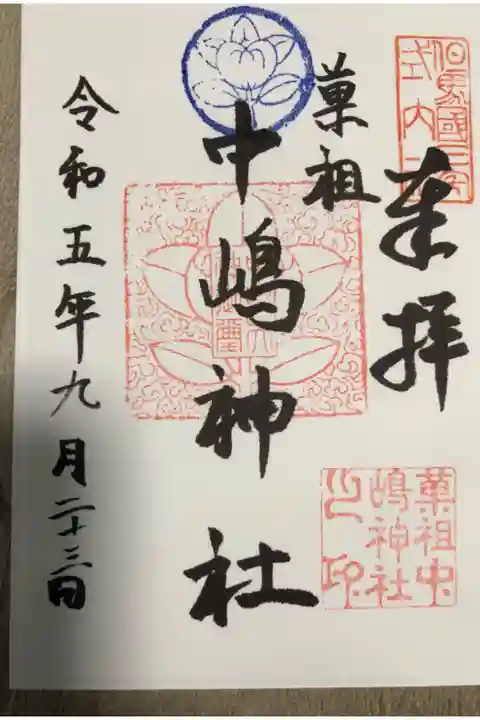 奉拝
菓祖
中嶋神社
令和五年九月二十三日
但馬國二字
式内二
菓祖中
嶋神社
之印